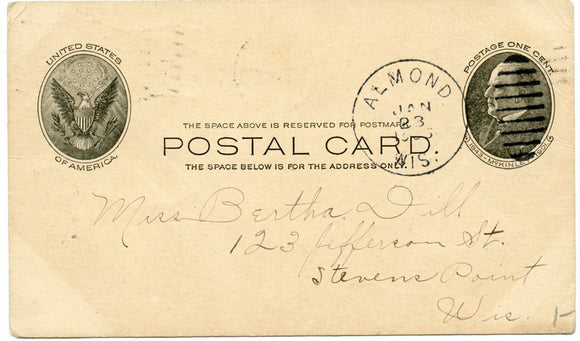 UNITED STATES
OF AMERICA.
POSTAGE ONE CENT.
1843-McKINLEY-1901.
ALMOND
JAN
23
WIS.
THE SPACE ABOVE IS RESERVED FOR POSTMARK.
POSTAL CARD.
THE SPACE BELOW IS FOR THE ADDRESS ONLY.
Miss Bertha Dill
123 Jefferson St.
Stevens Point
Wis.